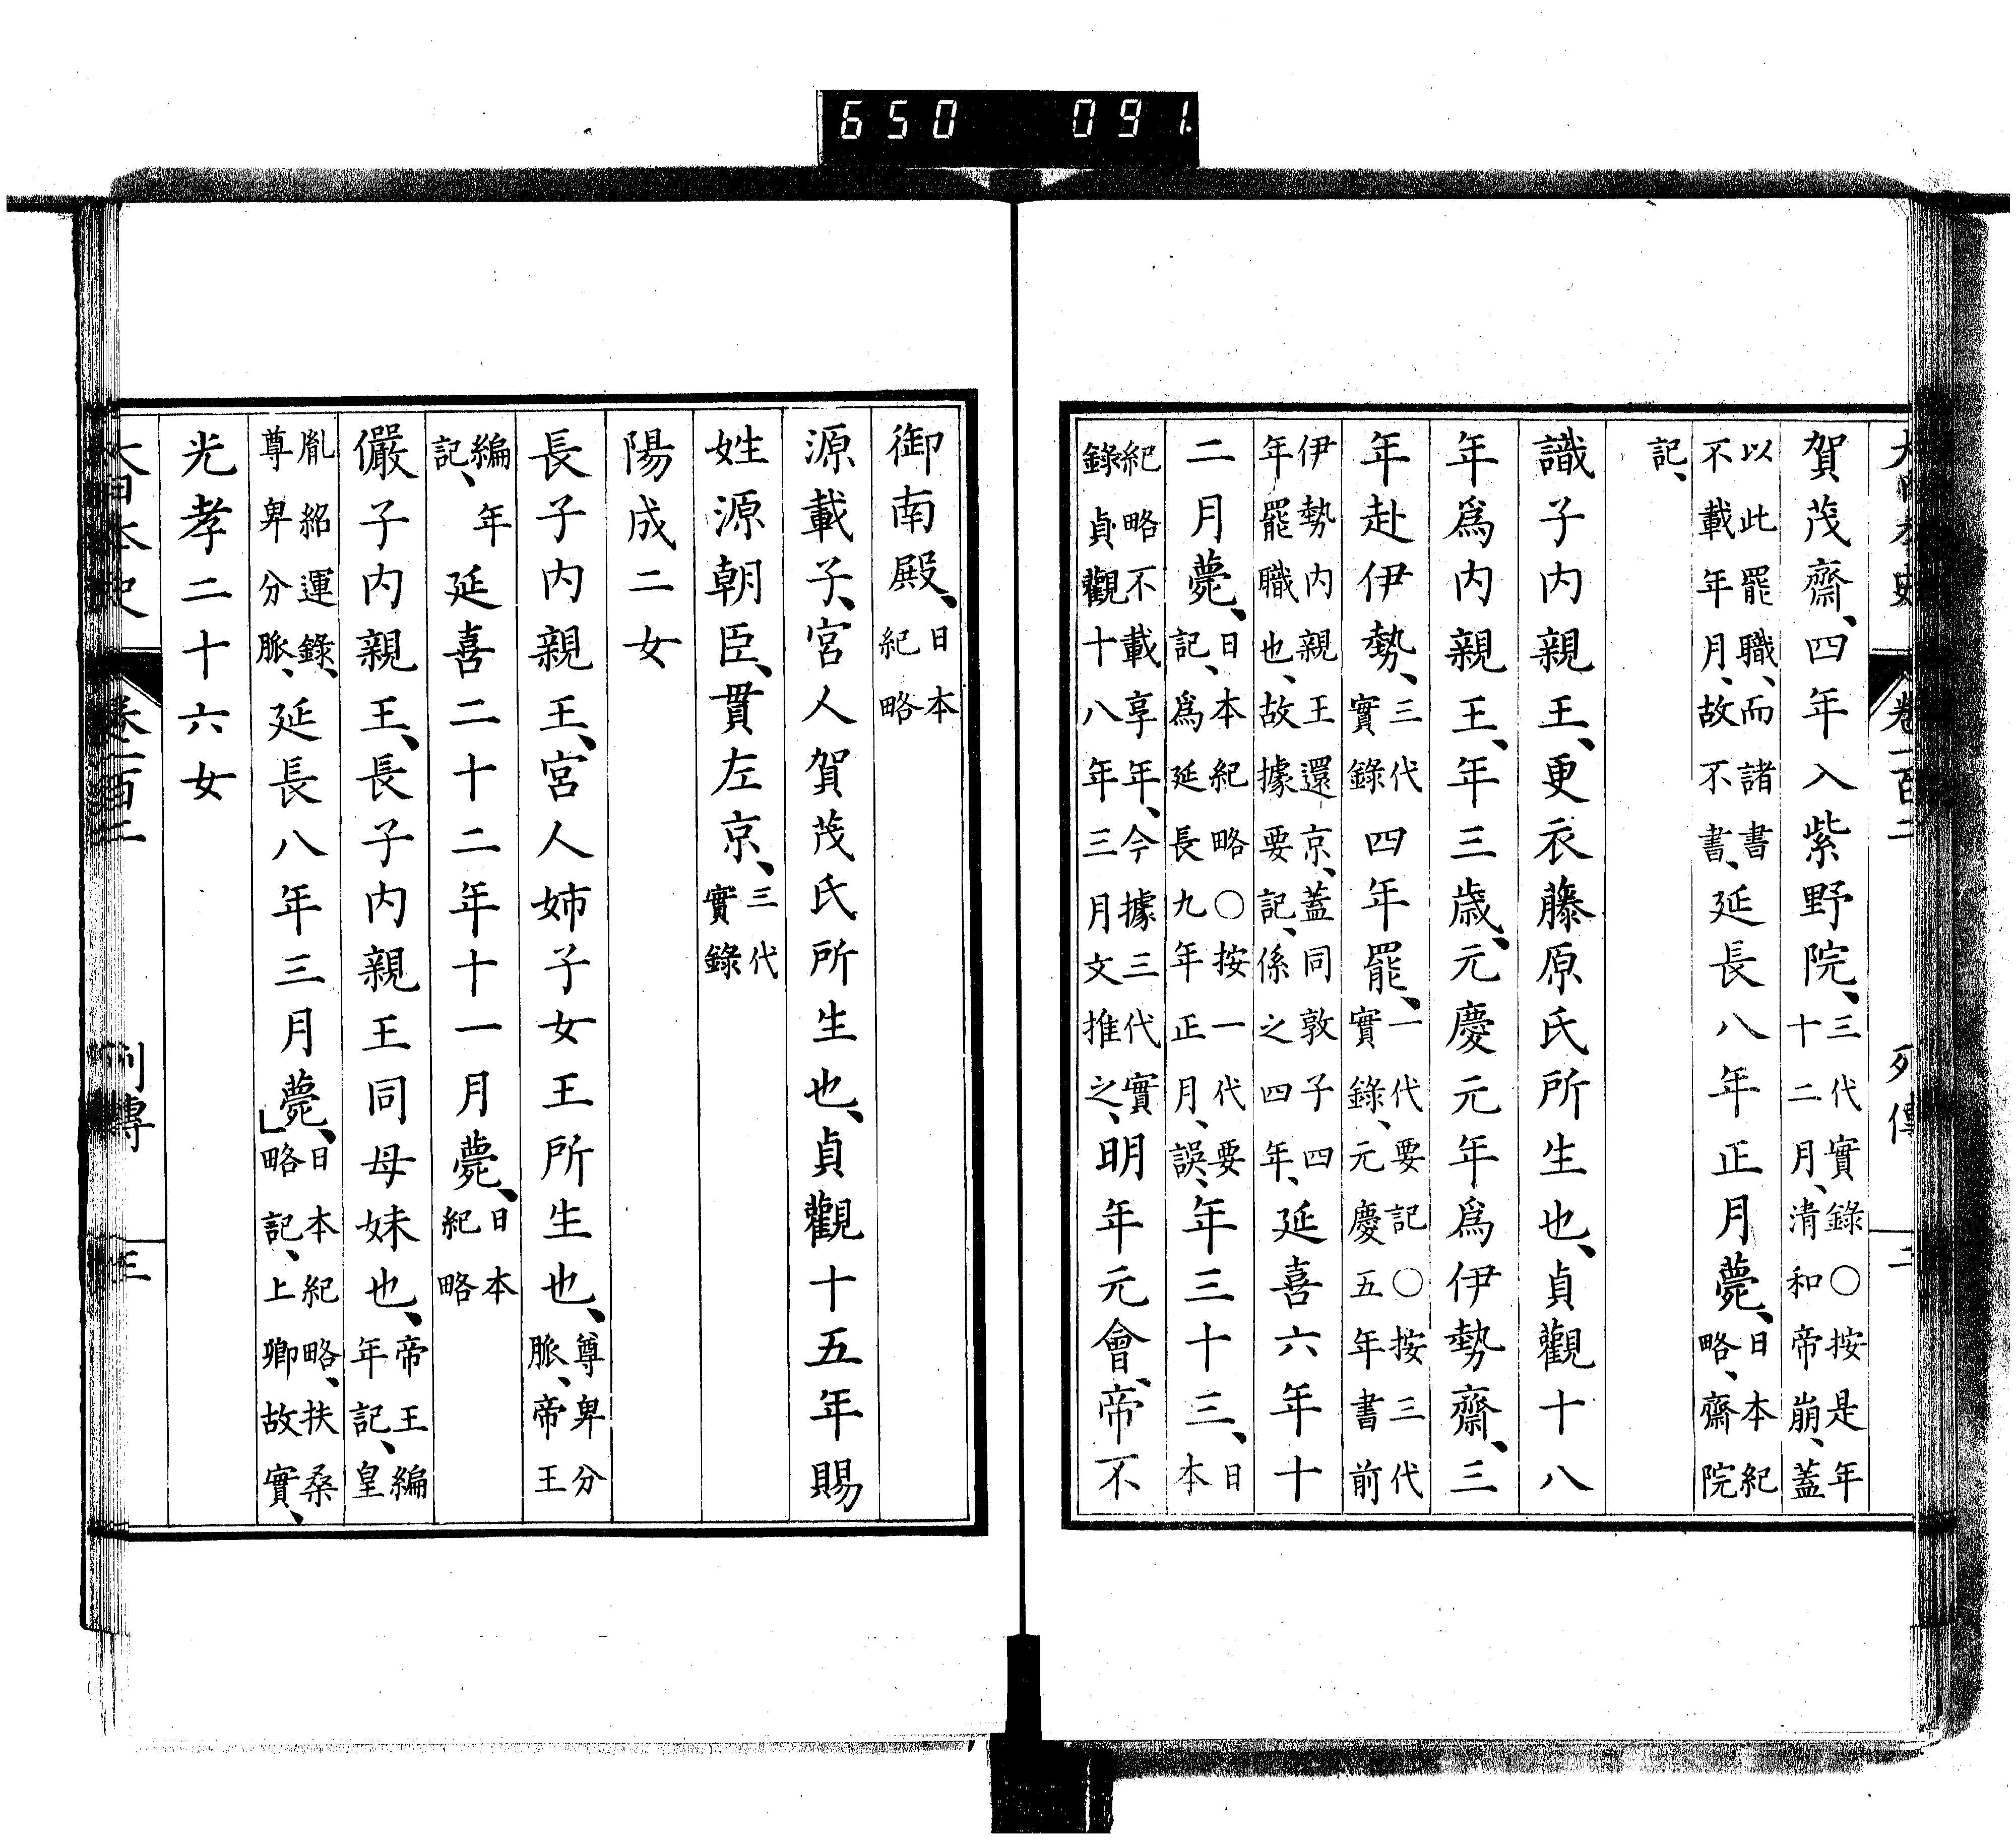 650 091.
大日本史 卷一百二 列傳 二
賀茂齋、四年入紫野院、三代實錄○按是年十二月、清和帝崩、蓋
以此罷職、而諸書不載年月、故不書、延長八年正月薨、日本紀略、齋院
記、
識子内親王、更衣藤原氏所生也、貞觀十八
年爲内親王、年三歳、元慶元年爲伊勢齋、三
年赴伊勢、三代實錄四年罷、一代要記○按三代實錄、元慶五年書前
伊勢内親王還京、蓋同敦子四年罷職也、故據要記、係之四年、延喜六年十
二月薨、日本紀略○按一代要記、爲延長九年正月、誤、年三十三、日本
紀略不載享年、今據三代實錄貞觀十八年三月文推之、明年元會、帝不
御南殿、日本紀略
源載子、宮人賀茂氏所生也、貞觀十五年賜
姓源朝臣、貫左京、三代實錄
陽成二女
長子内親王、宮人姉子女王所生也、尊卑分脈、帝王
編年記、延喜二十二年十一月薨、日本紀略
儼子内親王、長子内親王同母妹也、帝王編年記、皇
胤紹運錄、尊卑分脈、延長八年三月薨、日本紀略、扶桑略記、上卿故實、
光孝二十六女
大日本史 卷一百二 列傳 三